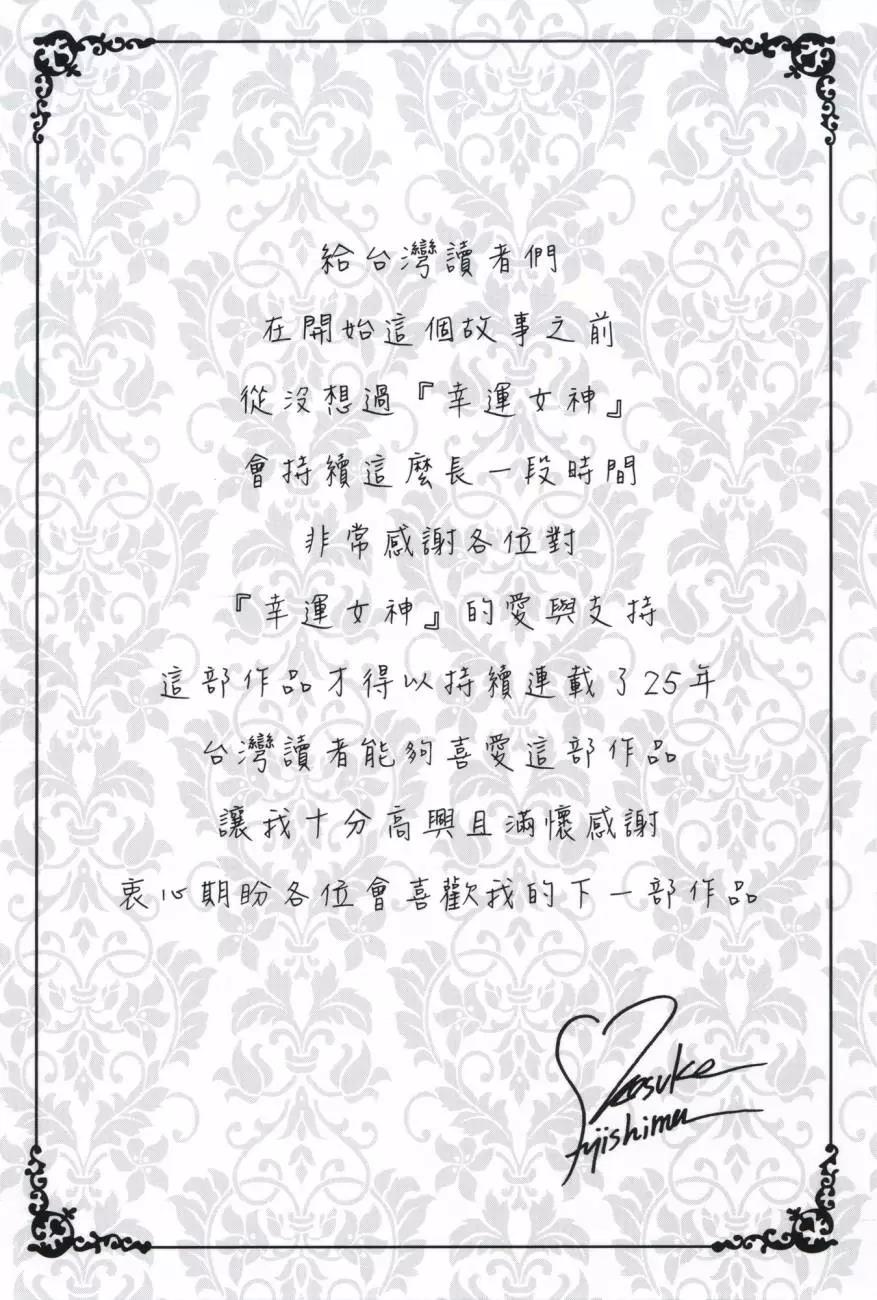 給台灣讀者們
在開始這個故事之前
從沒想過『幸運女神』
會持續這麼長一段時間
非常感謝各位對
『幸運女神』的愛與支持
這部作品才得以持續連載了25年
台灣讀者能夠喜愛這部作品
讓我十分高興且滿懷感謝
衷心期盼各位會喜歡我的下一部作品
Kosuke
Fujishima